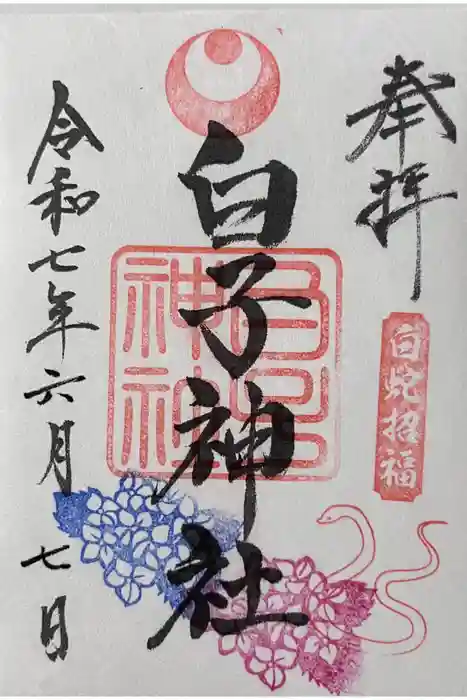 奉拝
白蛇招福
白子神社
白子
神社
令和七年六月七日